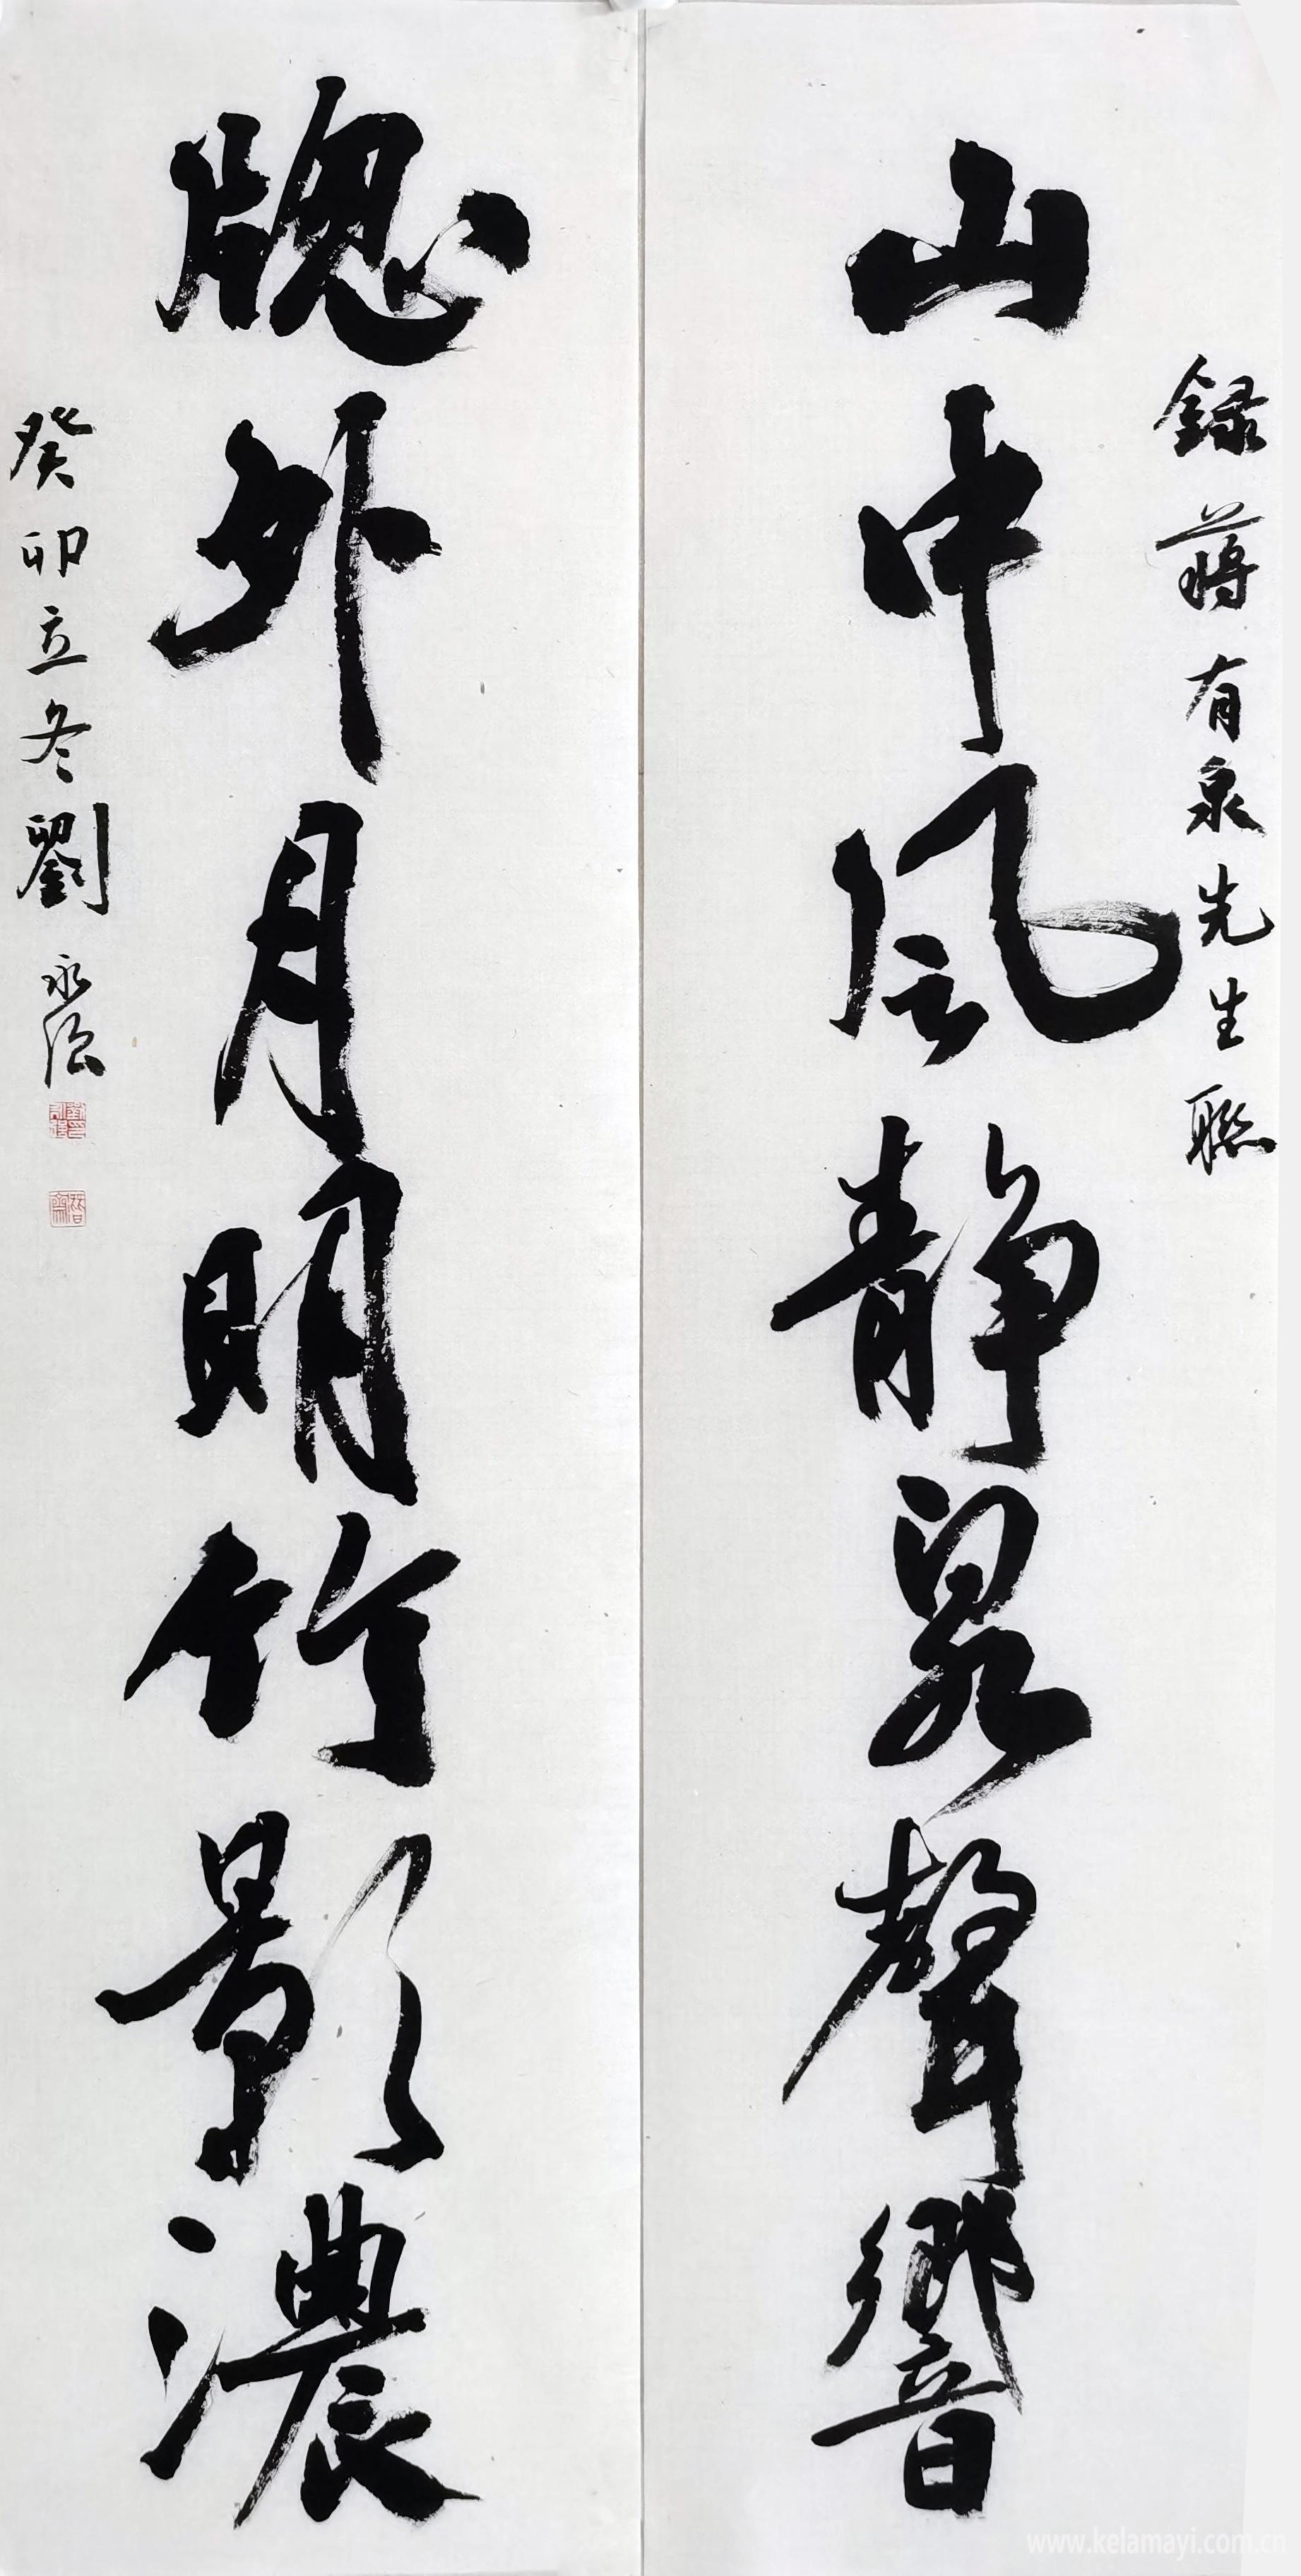 録蔣有泉先生聯
山中风靜泉聲響
牎外月明竹影濃
癸卯立冬劉永强
www.kelamayi.com.cn